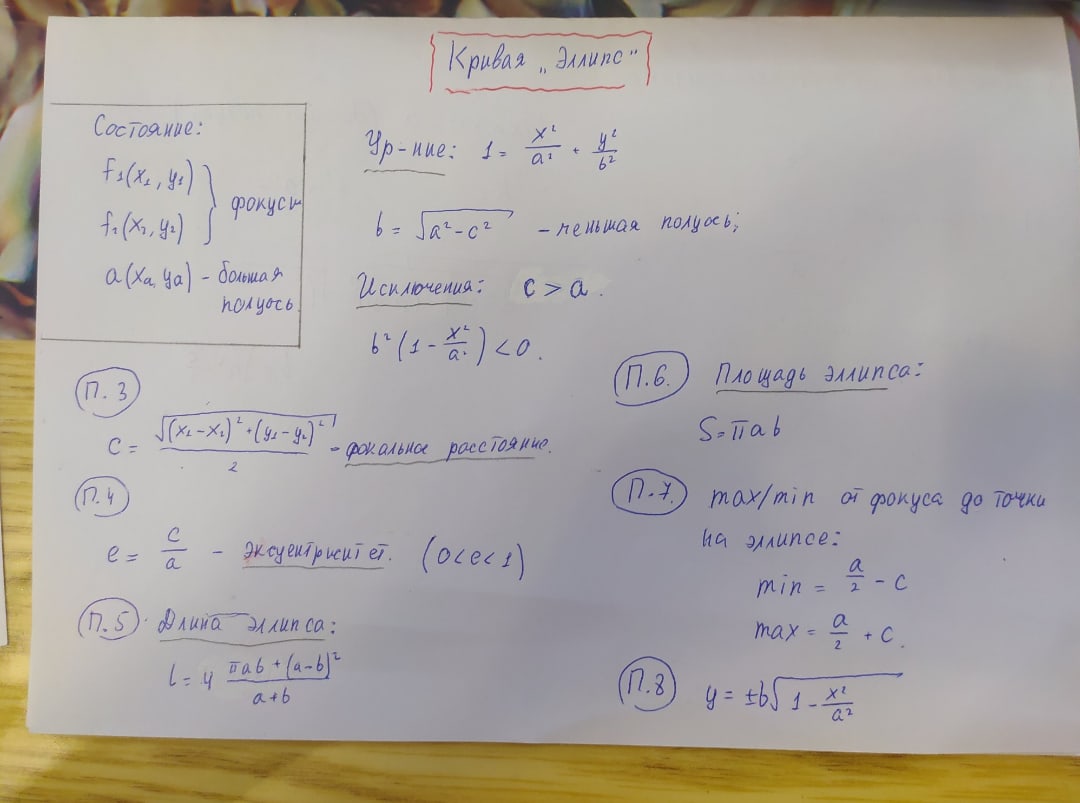 Кривая „Эллипс“
Состояние:
f₁(x₁, y₁)
f₂(x₂, y₂)
} фокусы
a(xₐ, yₐ) – большая
полуось
Ур-ние: 1 = x²/a² + y²/b²
b = √(a² – c²) – меньшая полуось;
Исключения: c > a.
b²(1 – x²/a²) < 0.
П.3
c = √((x₁–x₂)² + (y₁–y₂)²)/2 – фокальное расстояние.
П.4
e = c/a – эксцентриситет. (0<e<1)
П.5 Длина эллипса:
l = 4 (πab + (a–b)²)/(a+b)
П.6. Площадь эллипса:
S = πab
П.7. max/min от фокуса до точки
на эллипсе:
min = a/2 – c
max = a/2 + c.
П.8 y = ±b√(1 – x²/a²)